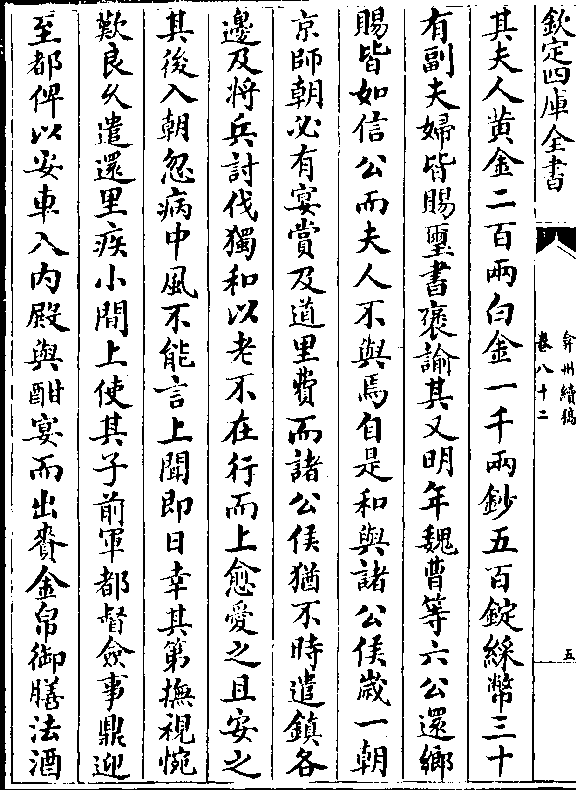 欽定四庫全書
弇州續稿
卷八十二
五
其夫人黄金二百兩白金一千兩鈔五百錠綵幣三十
有副夫婦皆賜璽書褒諭其又明年魏曹等六公還鄉
賜皆如信公而夫人不與焉自是和與諸公侯歲一朝
京師朝必有宴賞及道里費而諸公侯猶不時遣鎮各
邊及將兵討伐獨和以老不在行而上愈愛之且安之
其後入朝忽病中風不能言上聞即日幸其第撫視惋
歎良久遣還里疾小間上使其子前軍都督僉事鼎迎
至都俾以安車入內殿與酣宴而出賚金帛御膳法酒